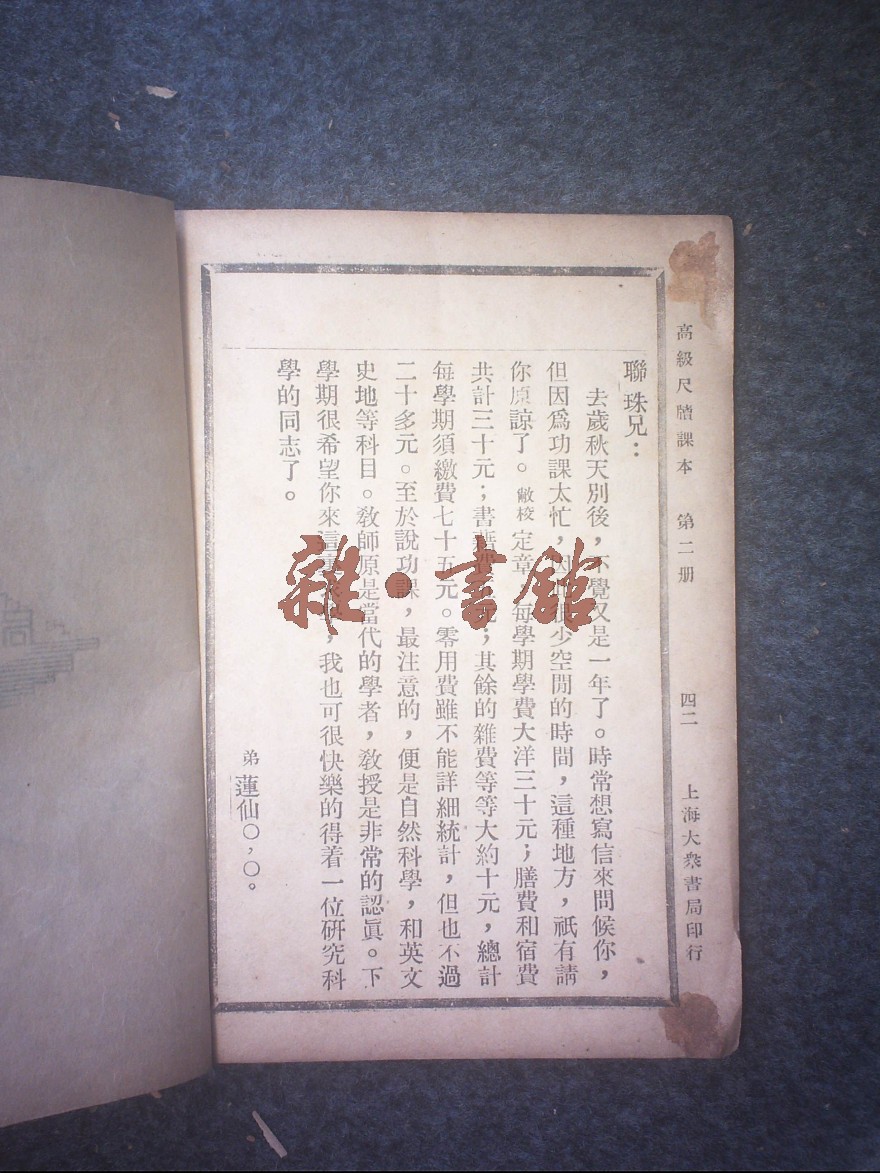 高級尺牘課本　第二册　四二　上海大衆書局印行
聯珠兄：
去歲秋天別後，不覺又是一年了。時常想寫信來問候你，
但因爲功課太忙，很少空閒的時間，這種地方，祇有請
你原諒了。敝校定章，每學期學費大洋三十元；膳費和宿費
共計三十元；書籍費元；其餘的雜費等等大約十元，總計
每學期須繳費七十五元。零用費雖不能詳細統計，但也不過
二十多元。至於說功課，最注意的，便是自然科學，和英文
史地等科目。教師原是當代的學者，教授是非常的認眞。下
學期很希望你來這，我也可很快樂的得着一位研究科
學的同志了。
弟蓮仙〇，〇。
雜·書館